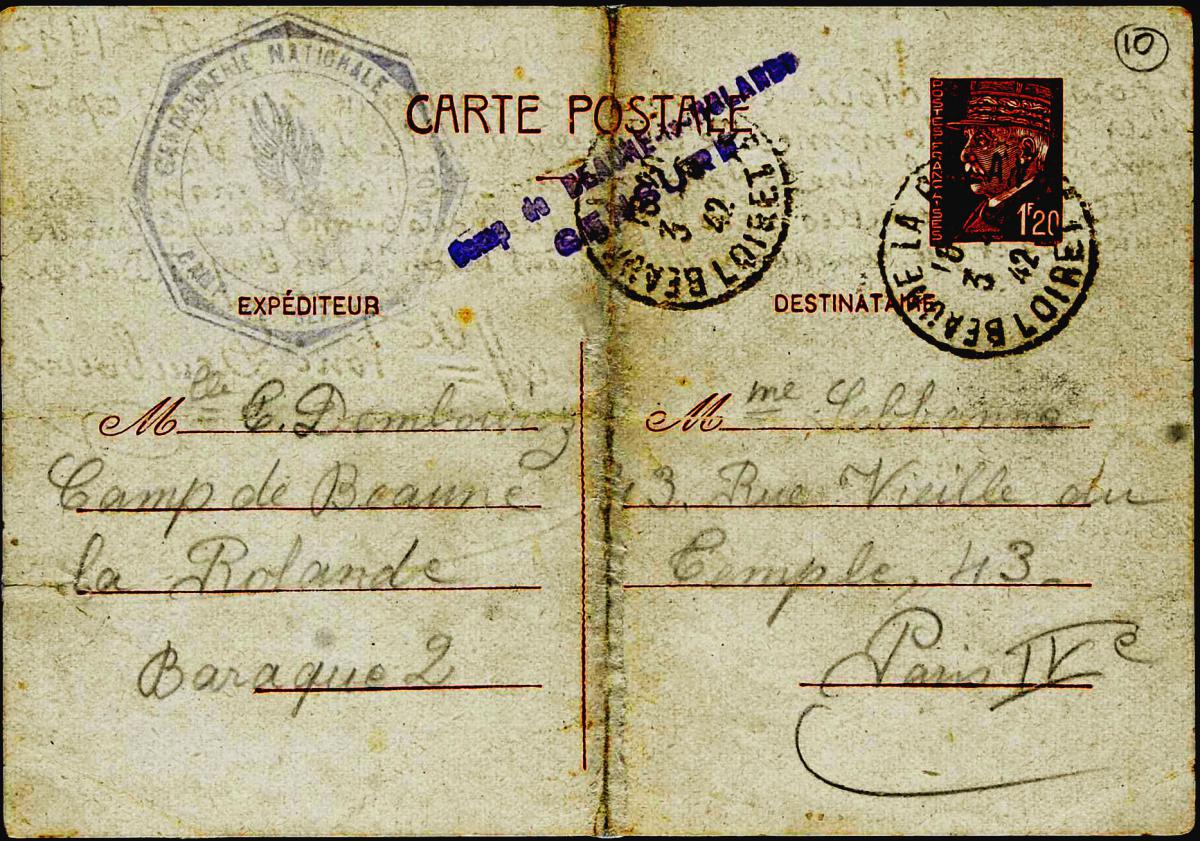 10
GENDARMERIE NATIONALE
CARTE POSTALE
Camp de BEAUNE-la-ROLANDE
POSTES FRANÇAISES
1F20
BEAUNE LA
18
3
42
LOIRET
18
3
42
LOIRET
EXPÉDITEUR
DESTINATAIRE
Mlle C.
Camp de Beaune
la Rolande
Baraque 2
Mme
43, Rue Vieille du
Temple, 43.
Paris IVe